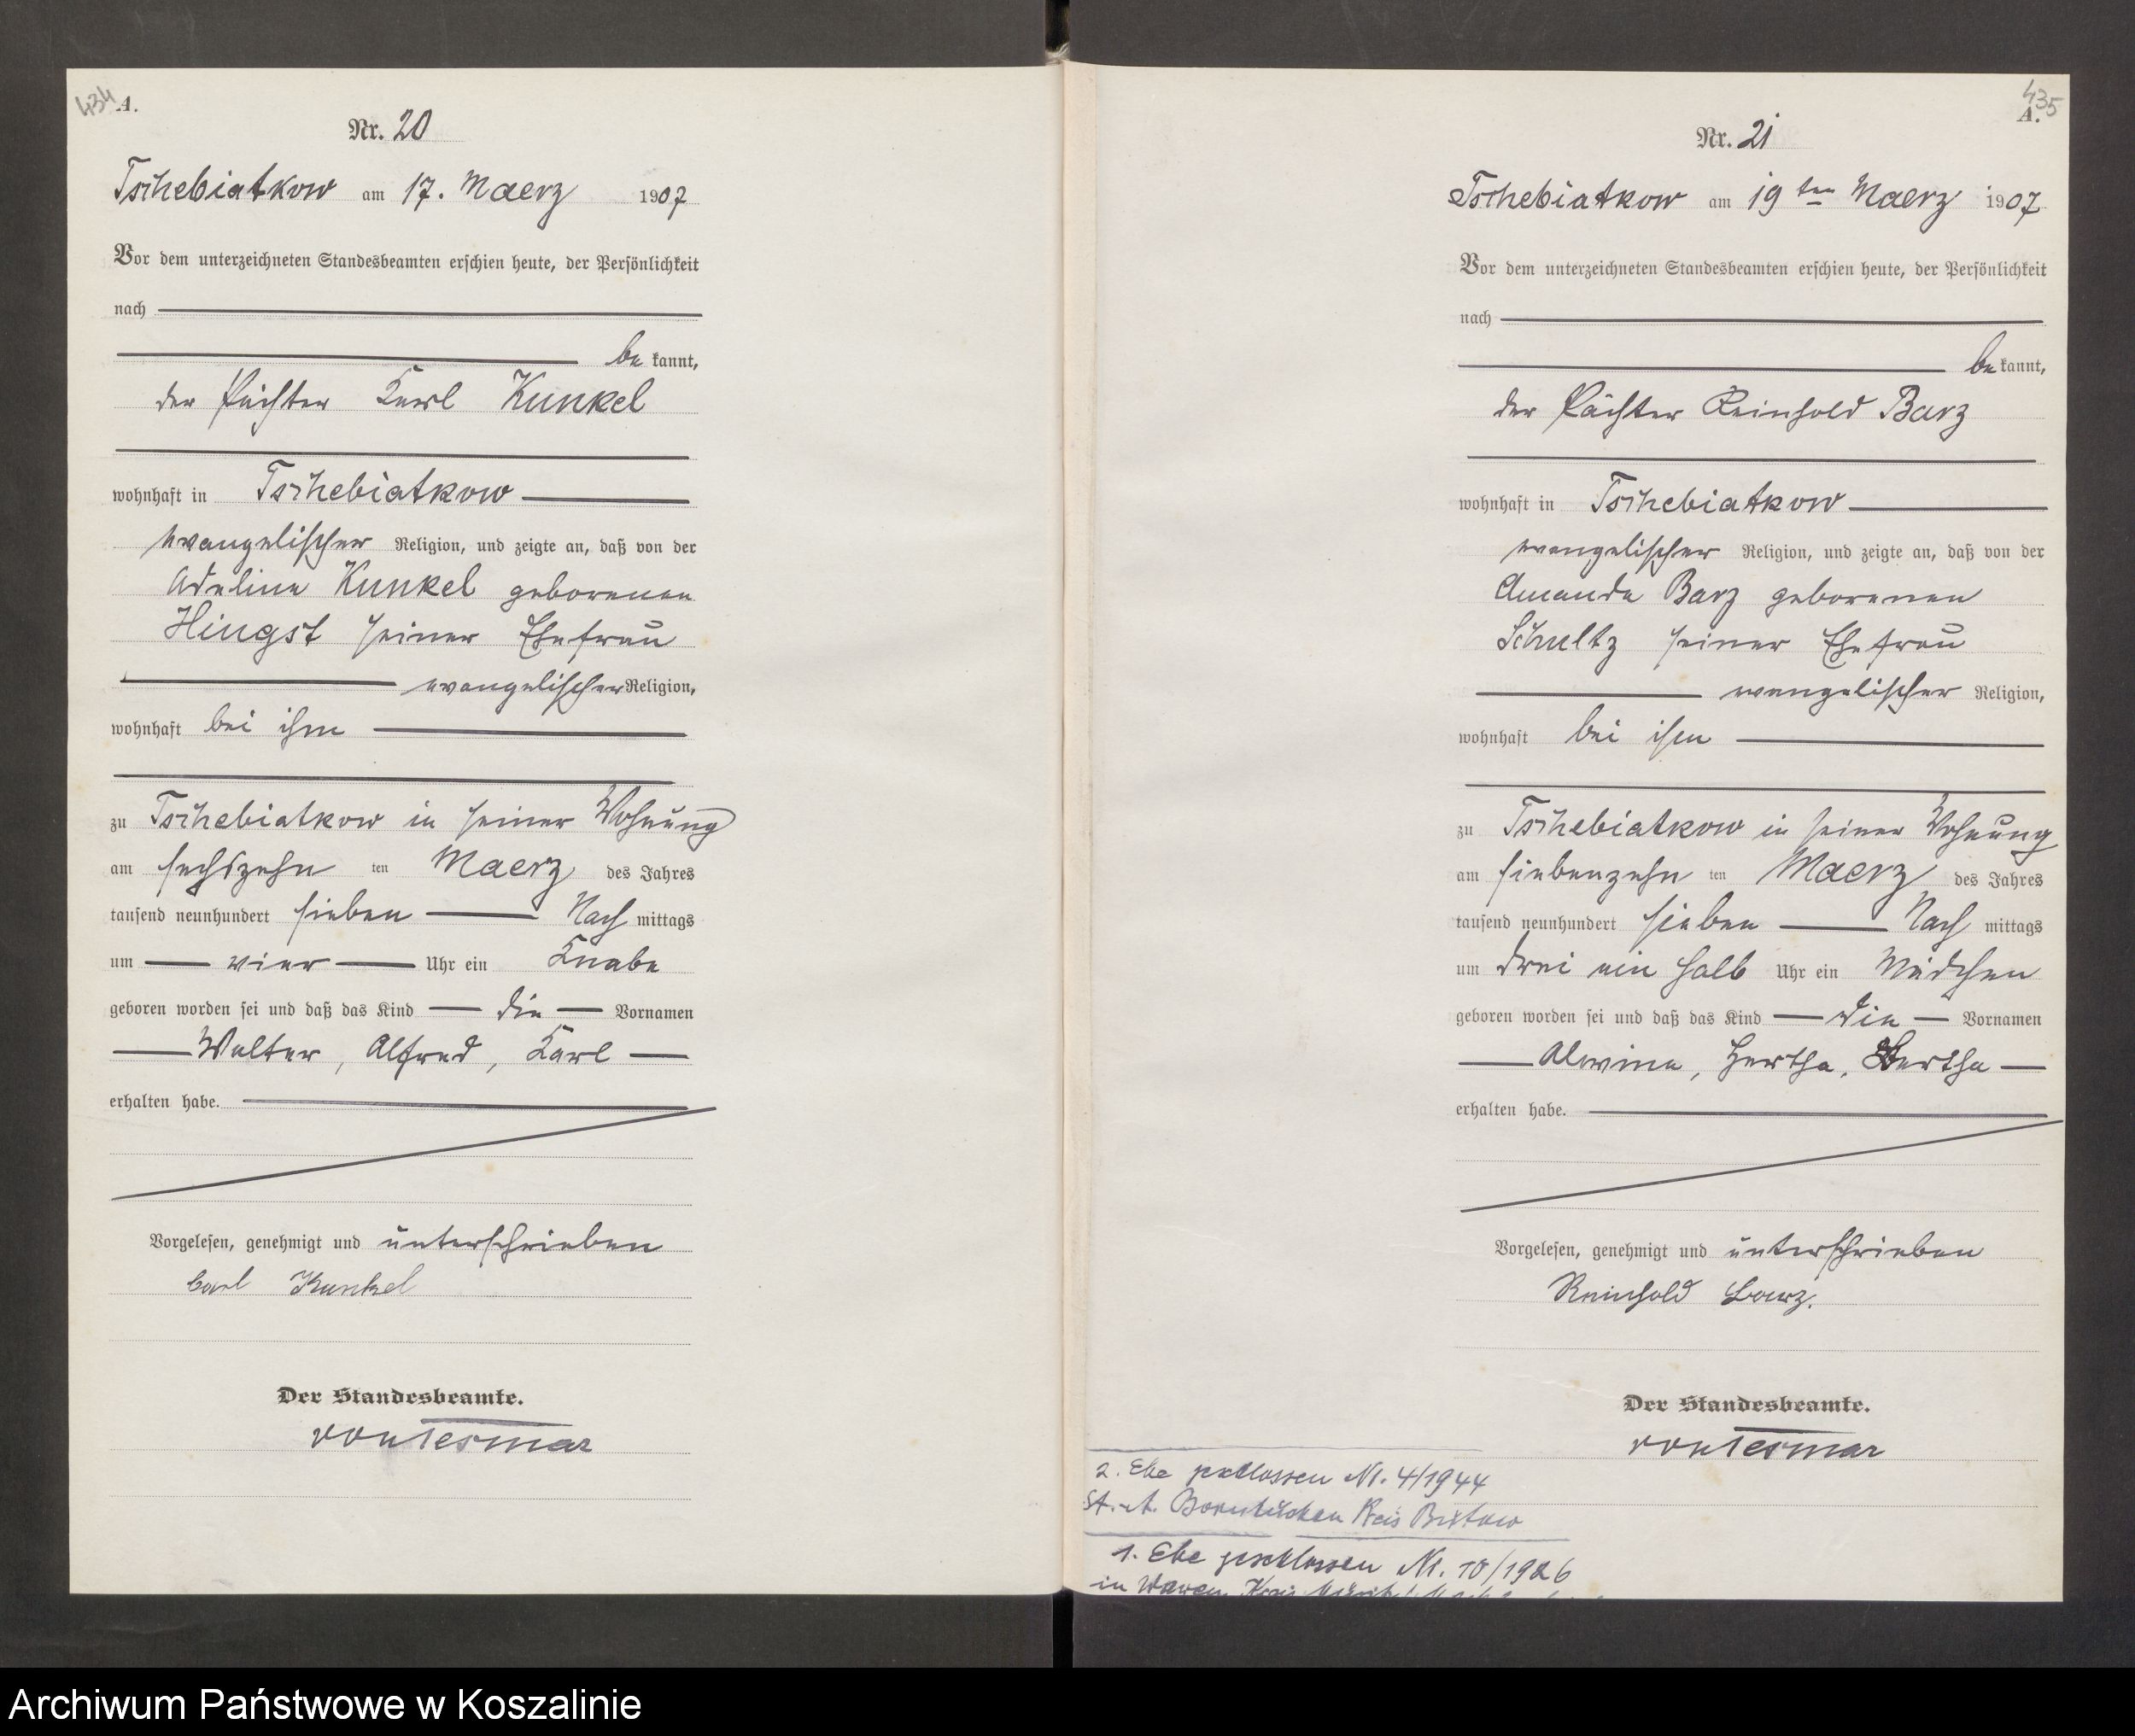 434
A.
Nr. 20
Tschebiatkow am 17. Maerz 1907
Vor dem unterzeichneten Standesbeamten erschien heute, der Persönlichkeit
nach
be kannt,
der Pächter Karl Kunkel
wohnhaft in Tschebiatkow
evangelischer Religion, und zeigte an, daß von der
Adeline Kunkel geborenen
Hingst seiner Ehefrau
evangelischer Religion,
wohnhaft bei ihm
zu Tschebiatkow in seiner Wohnung
am sechszehn ten Maerz des Jahres
tausend neunhundert sieben Nach mittags
um vier Uhr ein Knabe
geboren worden sei und daß das Kind die Vornamen
Walter, Alfred, Karl
erhalten habe.
Vorgelesen, genehmigt und unterschrieben
Carl Kunkel
Der Standesbeamte.
von Tesmar
435
A.
Nr. 21
Tschebiatkow am 19 ten Maerz 1907
Vor dem unterzeichneten Standesbeamten erschien heute, der Persönlichkeit
nach
be kannt,
der Pächter Reinhold Barz
wohnhaft in Tschebiatkow
evangelischer Religion, und zeigte an, daß von der
Amanda Barz geborenen
Schultz seiner Ehefrau
evangelischer Religion,
wohnhaft bei ihm
zu Tschebiatkow in seiner Wohnung
am siebenzehn ten Maerz des Jahres
tausend neunhundert sieben Nach mittags
um drei ein halb Uhr ein Mädchen
geboren worden sei und daß das Kind die Vornamen
Alwine, Hertha, Bertha
erhalten habe.
Vorgelesen, genehmigt und unterschrieben
Reinhold Barz.
Der Standesbeamte.
von Tesmar
2. Ehe geschlossen Nr. 4/1944
St.A. Borntuchen Kreis Bütow
1. Ehe geschlossen Nr. 10/1926
in Waren Kreis
Archiwum Państwowe w Koszalinie